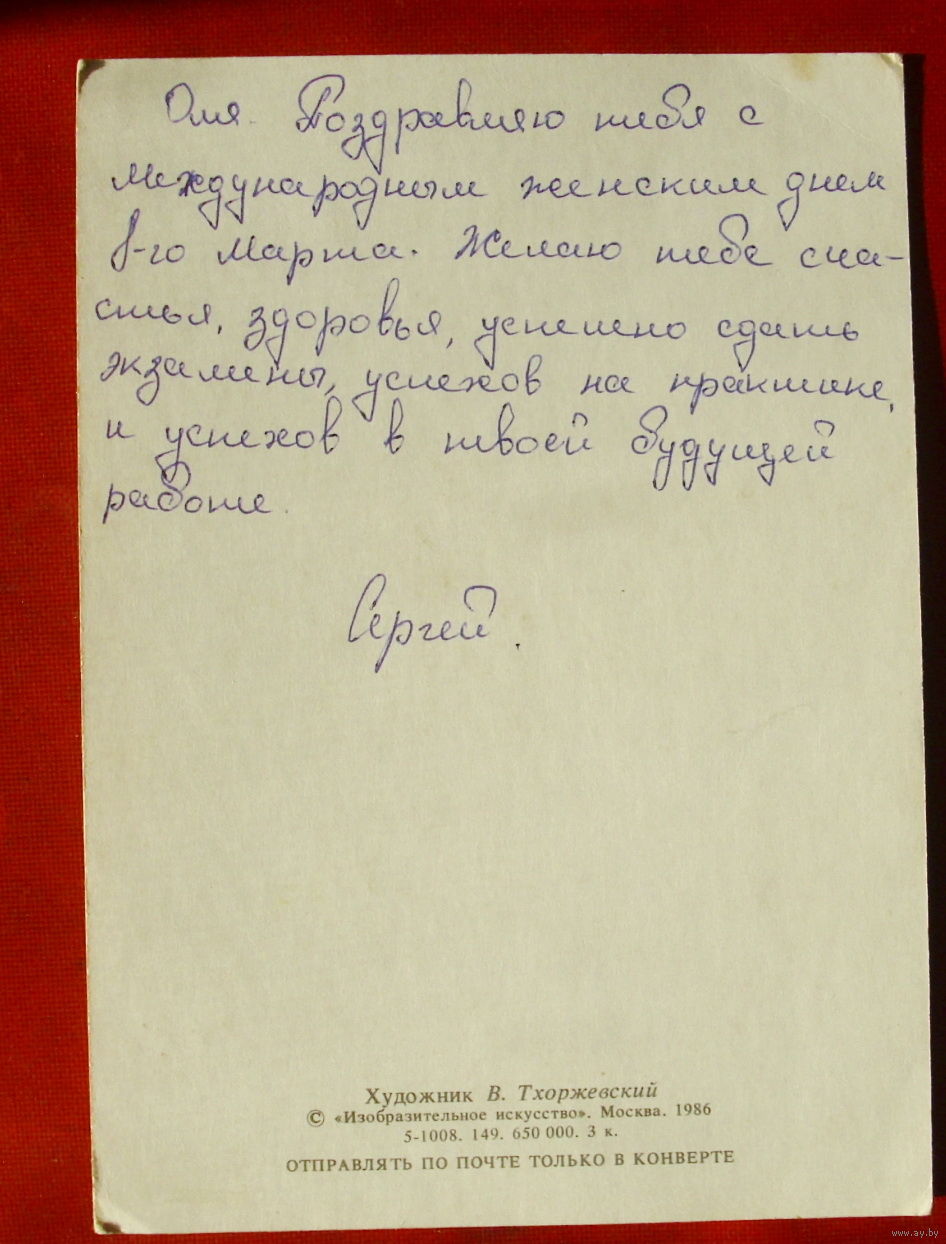 Оля. Поздравляю тебя с
международным женским днем
8-го Марта. Желаю тебе сча-
стья, здоровья, успешно сдать
экзамены, успехов на практике,
и успехов в твоей будущей
работе.
Сергей.
Художник В. Тхоржевский
© «Изобразительное искусство». Москва. 1986
5-1008. 149. 650 000. 3 к.
ОТПРАВЛЯТЬ ПО ПОЧТЕ ТОЛЬКО В КОНВЕРТЕ
www.ay.by